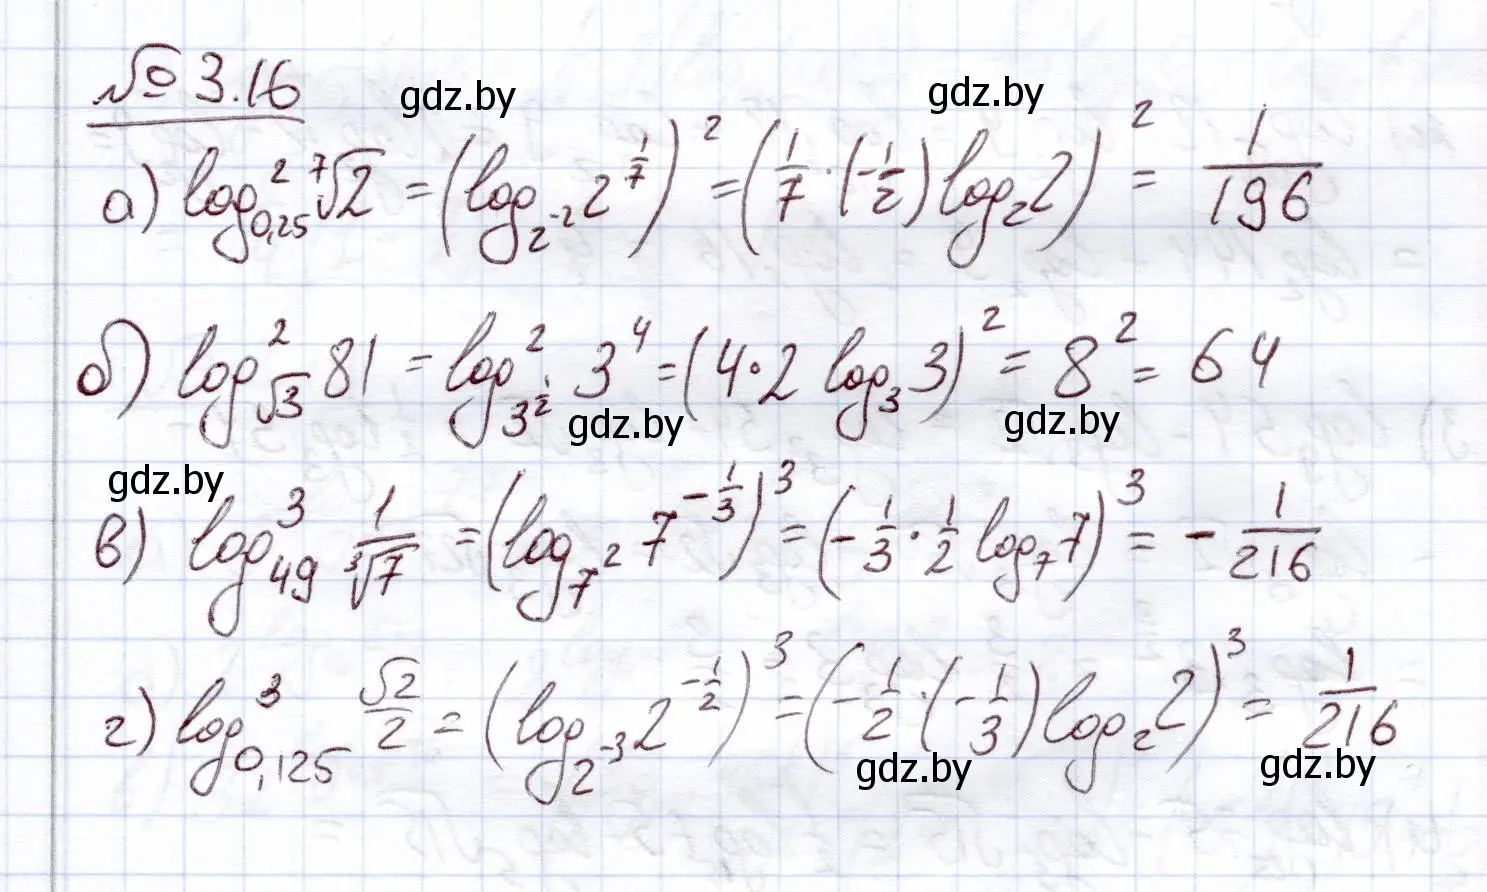 № 3.16
gdz.by gdz.by
а) log²₀,₂₅ ⁷√2 = (log₂⁻² 2^(1/7))² = (1/7 · (-1/2) log₂ 2)² = 1/196
б) log²_√3 81 = log²_3^(1/2) 3⁴ = (4·2 log₃ 3)² = 8² = 64
gdz.by gdz.by
gdz.by
в) log³₄₉ 1/∛7 = (log_7² 7^(-1/3))³ = (-1/3 · 1/2 log₇ 7)³ = - 1/216
г) log³₀,₁₂₅ √2/2 = (log₂⁻³ 2^(-1/2))³ = (-1/2 · (-1/3) log₂ 2)³ = 1/216
gdz.by gdz.by